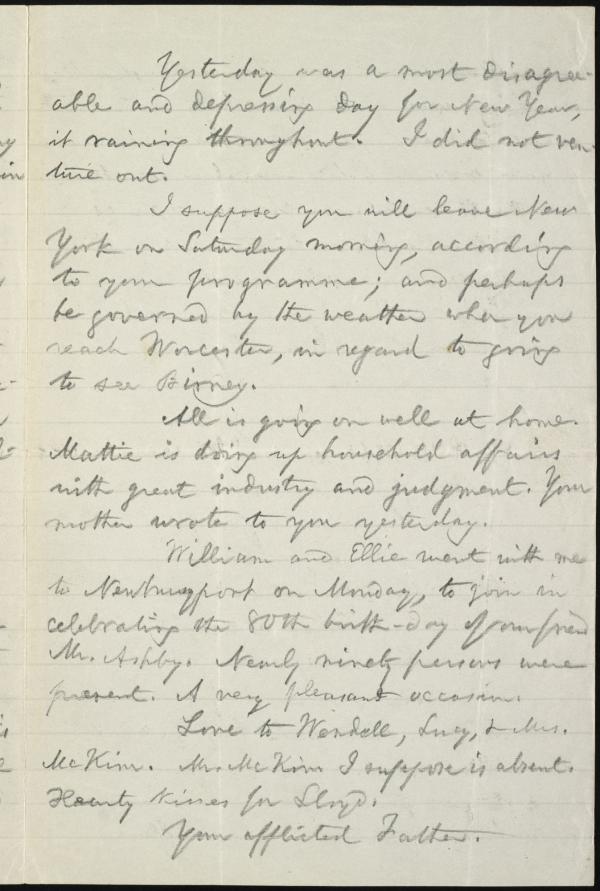 Yesterday was a most disagree-
able and depressing day for New Year,
it raining throughout. I did not ven-
ture out.
I suppose you will leave New
York on Saturday morning, according
to your programme; and perhaps
be governed by the weather when you
reach Worcester, in regard to going
to see Birney.
All is going on well at home.
Mattie is doing up household affairs
with great industry and judgment. Your
mother wrote to you yesterday.
William and Ellie went with me
to Newburyport on Monday, to join in
celebrating the 80th birth-day of our friend
Mr. Ashby. Nearly ninety persons were
present. A very pleasant occasion.
Love to Wendell, Lucy, & Mrs.
McKim. Mr. McKim I suppose is absent.
Hearty kisses for Lloyd.
Your afflicted Father.